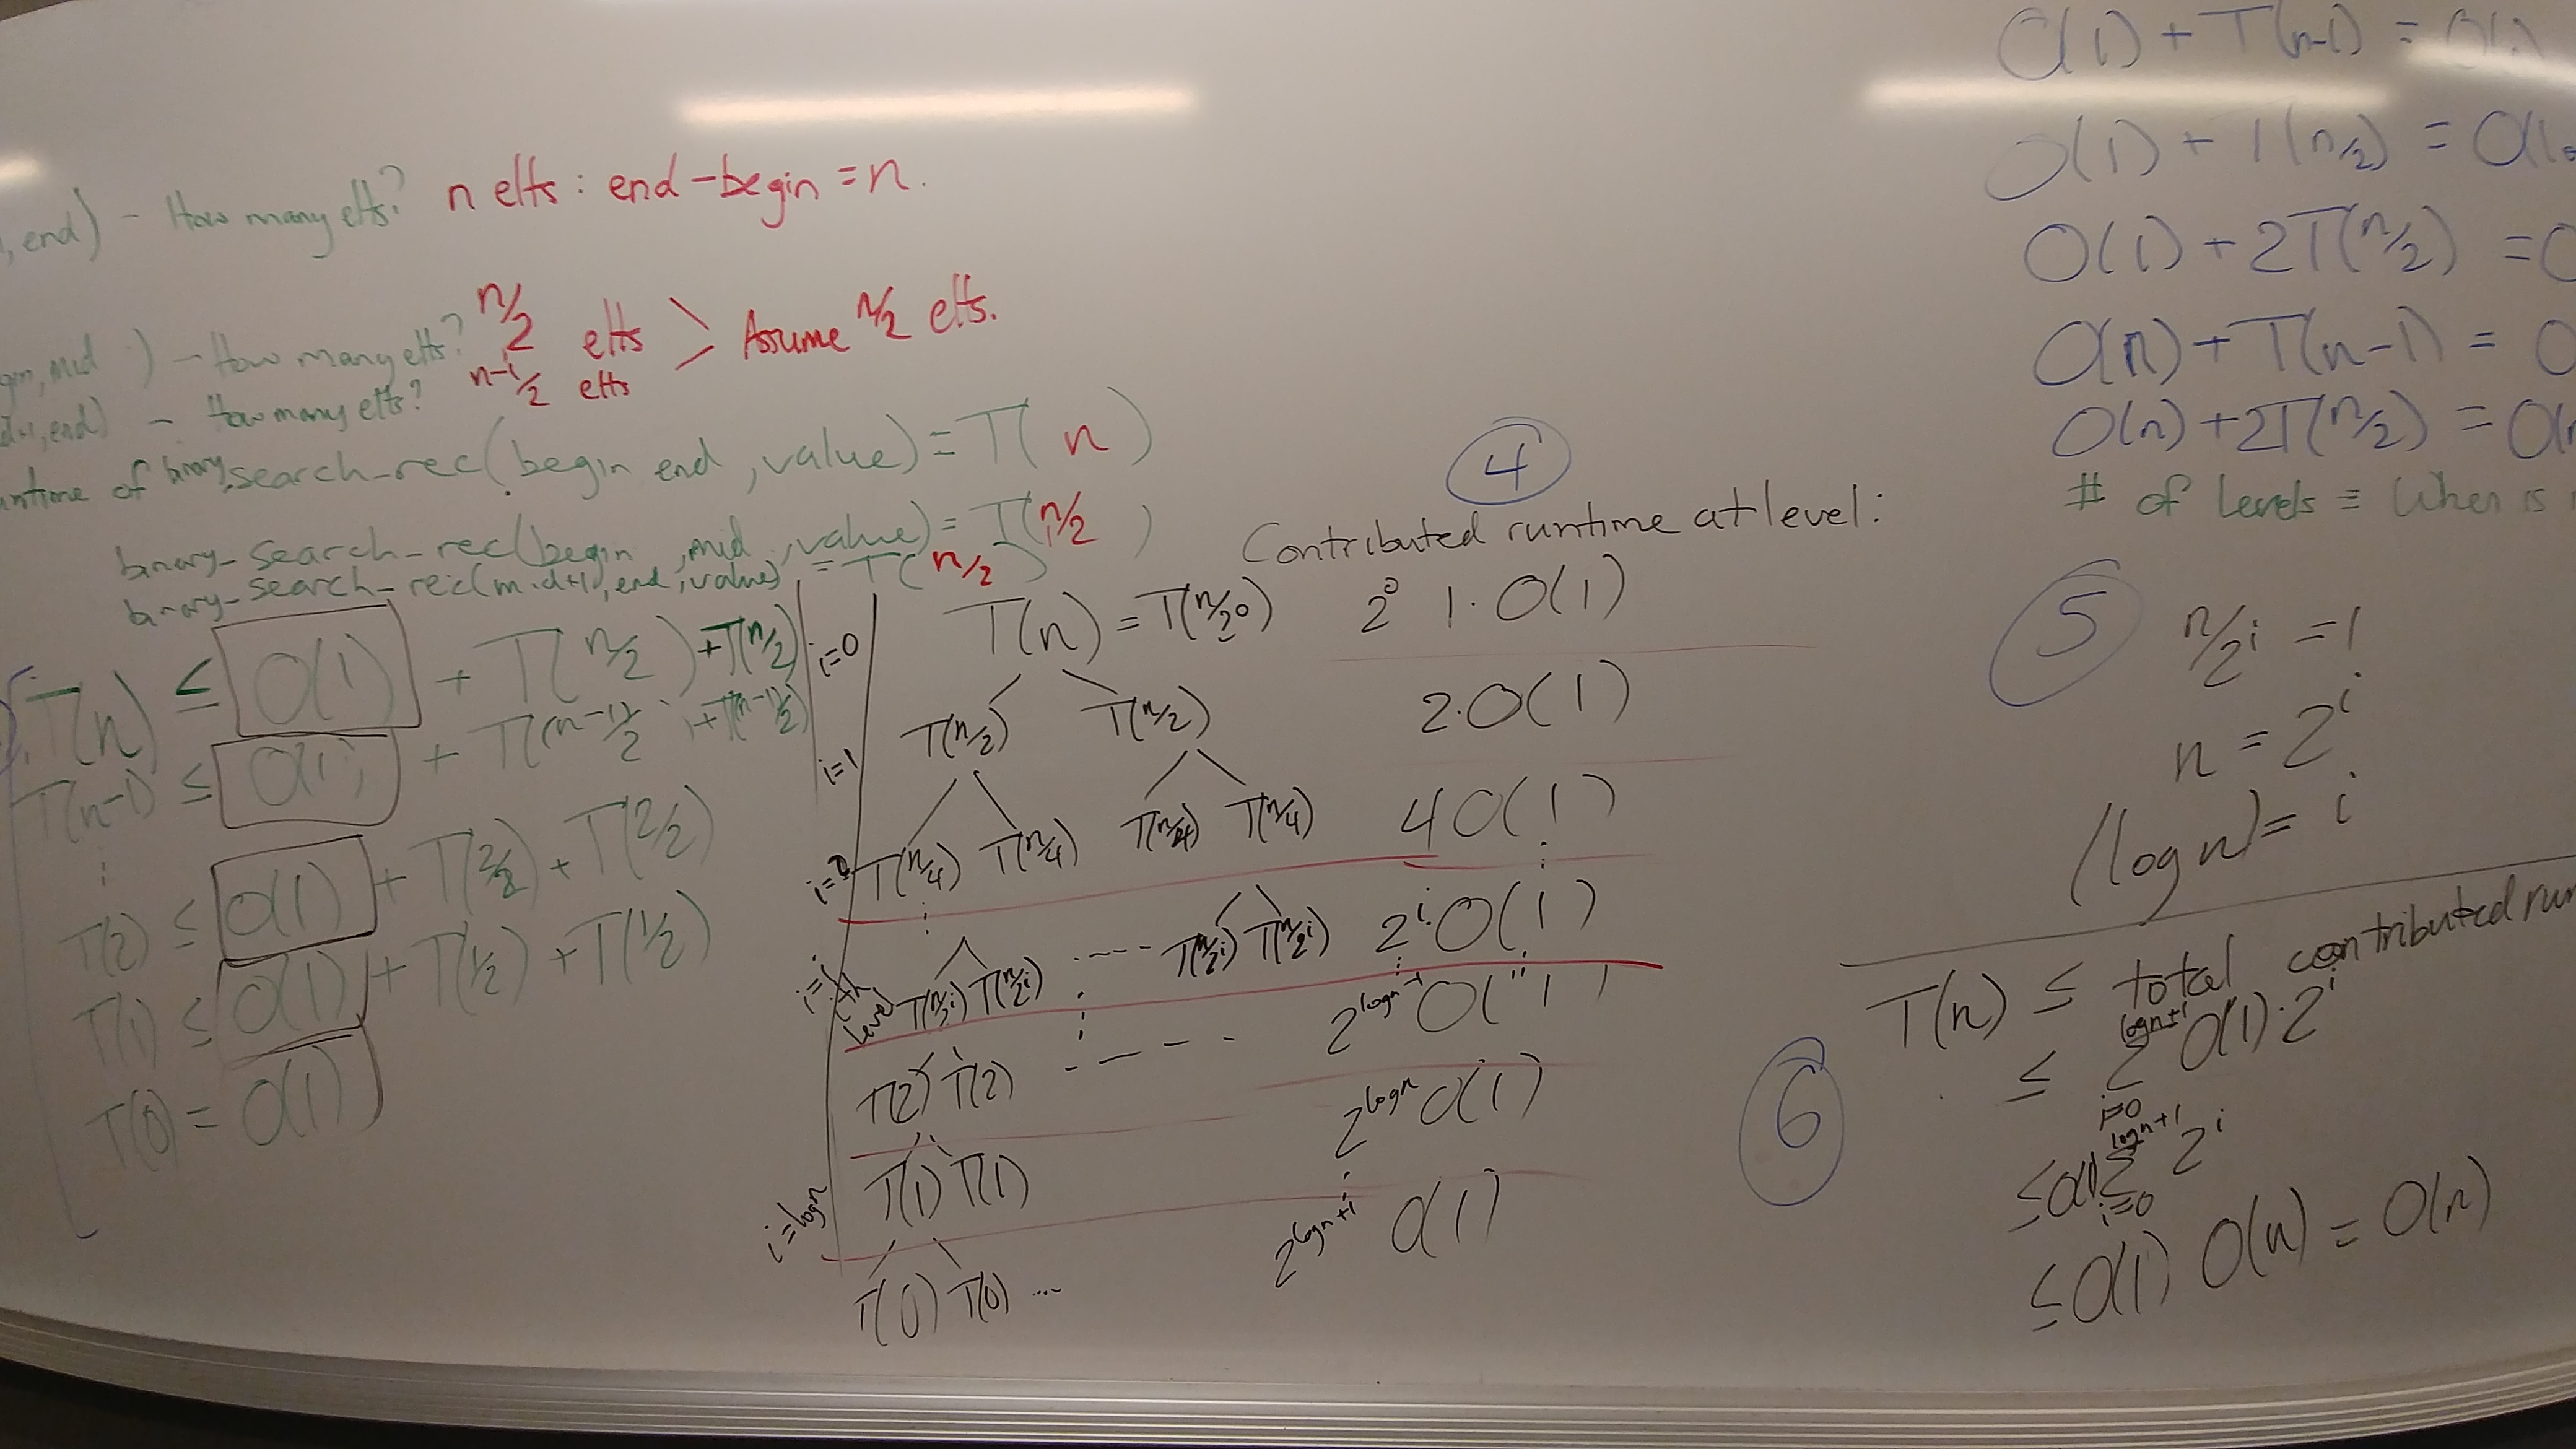 , end) - How many elts? n elts : end - begin = n.
gin, mid ) - How many elts? n/2 elts > Assume n/2 elts.
d+1, end) - How many elts? n-1/2 elts
untime of binary_search_rec( begin end , value) = T( n )
binary_search_rec(begin , mid , value) = T( n/2 )
binary_search_rec(mid+1, end , value) = T( n/2 )
T(n) ≤ O(1) + T( n/2 ) + T(n/2)
T(n-1) ≤ O(1) + T((n-1)/2 ) + T((n-1)/2)
⋮
T(2) ≤ O(1) + T(2/2) + T(2/2)
T(1) ≤ O(1) + T(1/2) + T(1/2)
T(0) = O(1)
④
Contributed runtime at level:
i=0 T(n) = T(n/2^0) 2^0 1·O(1)
i=1 T(n/2) T(n/2) 2·O(1)
i=2 T(n/4) T(n/4) T(n/4) T(n/4) 4 O(1)
⋮ ⋮
i=ith level T(n/2^i) T(n/2^i) ---- T(n/2^i) T(n/2^i) 2^i O(1)
T(2) T(2) ---- 2^(log n-1) O(1)
i=log n T(1) T(1) 2^(log n) O(1)
T(0) T(0) ... 2^(log n+1) O(1)
O(1) + T(n-1) = O(
O(1) + T(n/2) = O(lo
O(1) + 2T(n/2) = O
O(n) + T(n-1) = O
O(n) + 2T(n/2) = O(n
# of levels ≡ When is
⑤
n/2^i = 1
n = 2^i
(log n) = i
⑥
T(n) ≤ total contributed run
≤ Σ_{i=0}^{log n+1} O(1)·2^i
≤ O(1) Σ_{i=0}^{log n+1} 2^i
≤ O(1) O(n) = O(n)